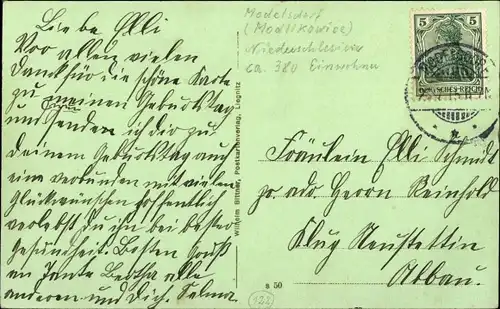 Liebe Elli
Vor allen vielen
Dank für die schöne Karte
zu meinen Geburtstag
und Sende ich dir zu
deinem Geburtstag auch
eine verbunden mit vielen
Glückwünschen hoffentlich
verlebst Du ihn bei bester
Gesundheit. Besten Gruß
an Tante Bertha alle
anderen und Dich. Selma.
Modelsdorf
(Modlikowice)
Niederschlesien
ca. 380 Einwohner
5 5
DEUTSCHES REICH
Wilhelm Bittner, Postkartenverlag, Liegnitz
Fräulein Elli Schmidt
pr. adr. Herrn Reinhold
Klug Neustettin
Abbau.
a 50
122